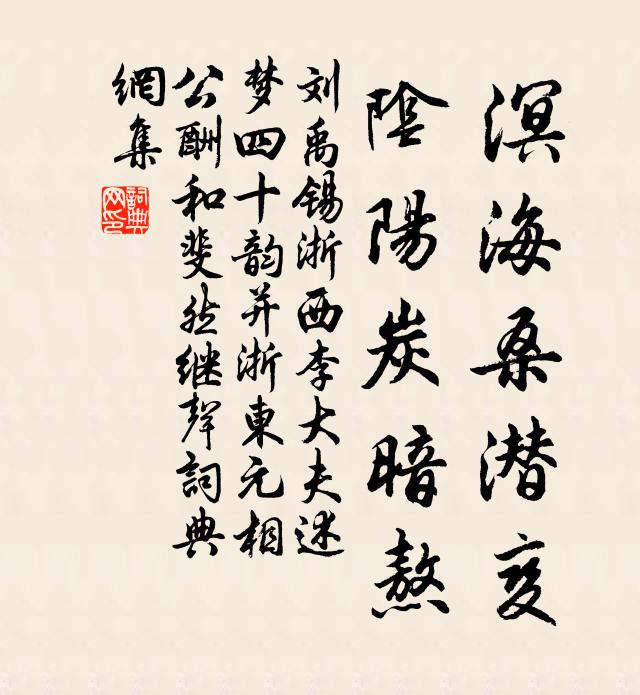 溟海桑潜变
陰陽炭暗熬
刘禹锡浙西李大夫述
梦四十韵并浙東元相
公酬和斐然继聲詞典
網集
詞典网印